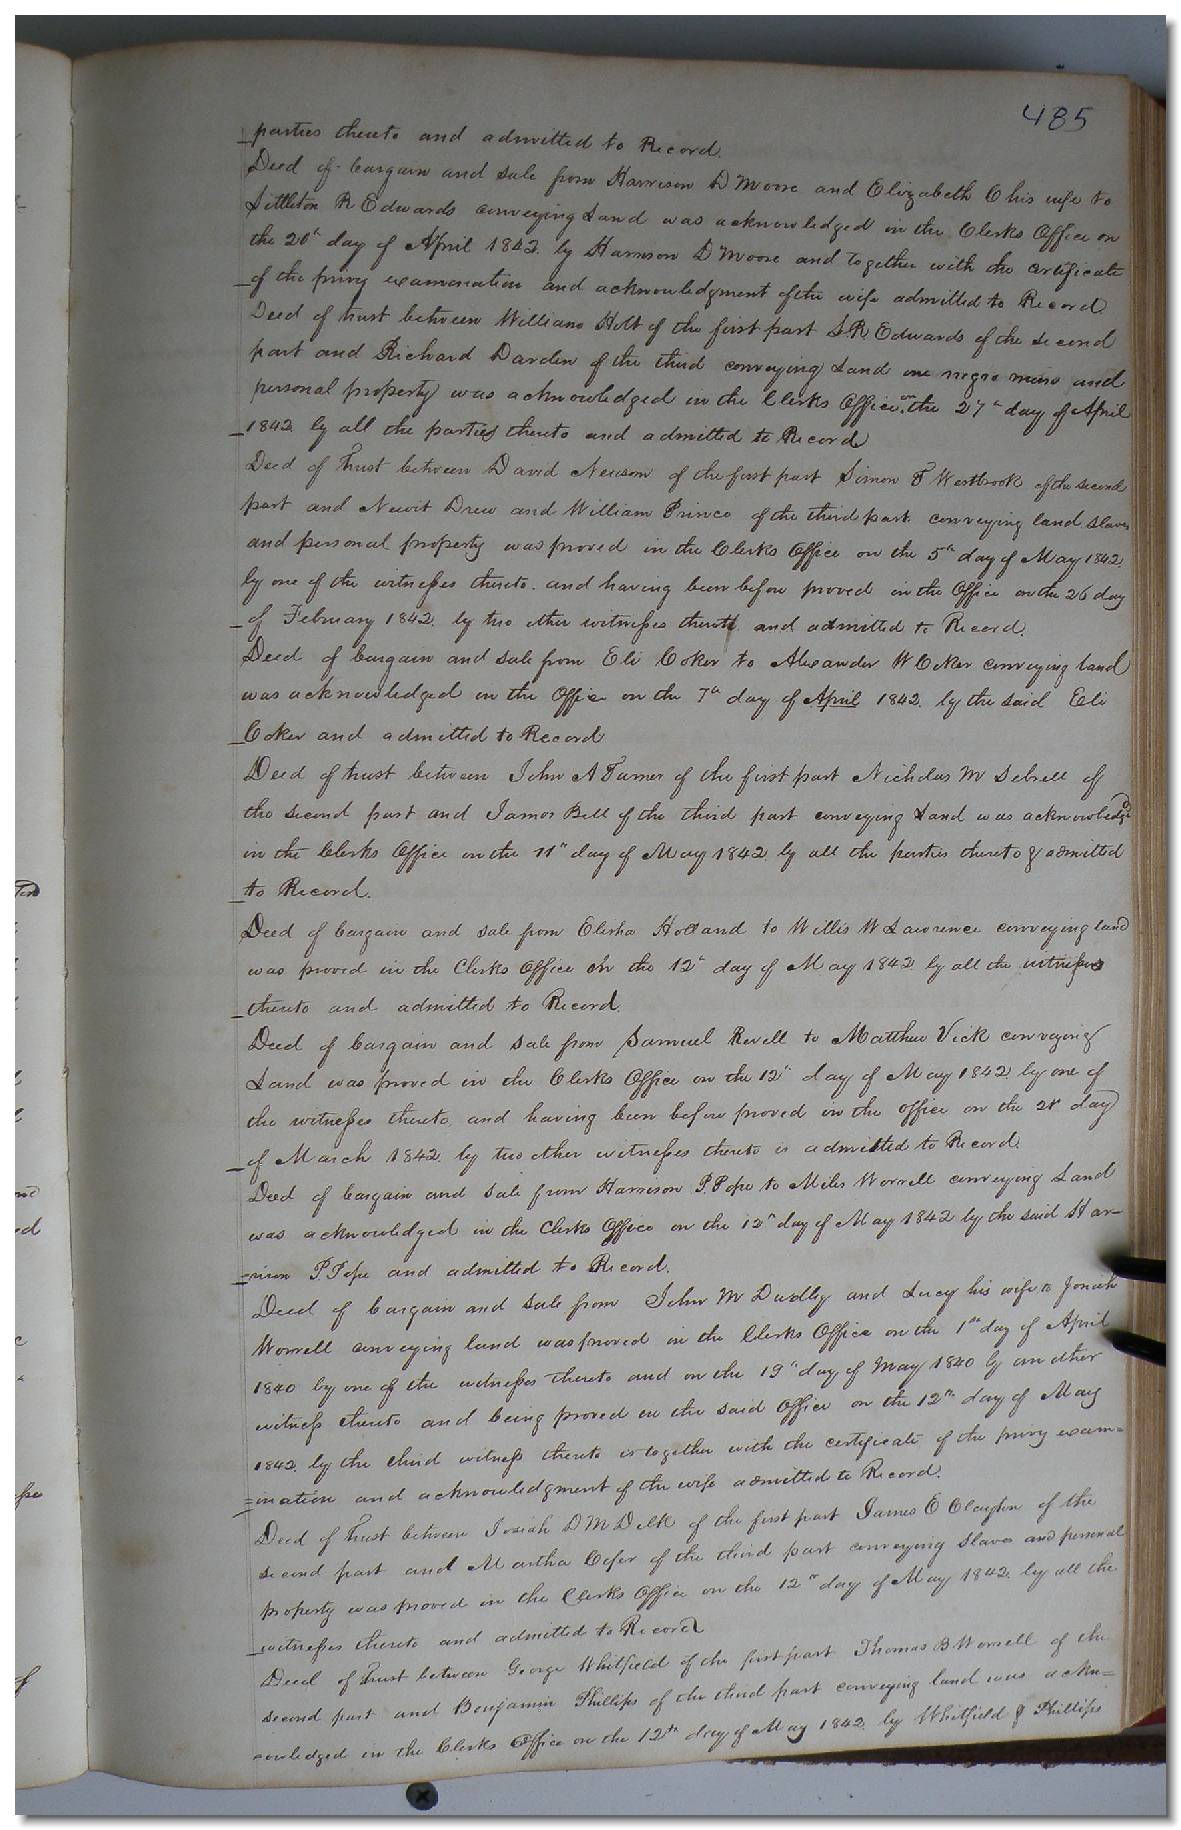 485
parties thereto and admitted to Record.
Deed of bargain and sale from Harrison D Moore and Elizabeth C his wife to
Littleton R Edwards conveying Land was acknowledged in the Clerks Office on
the 20th day of April 1842. by Harrison D Moore and together with the certificate
of the privy examination and acknowledgment of the wife admitted to Record
Deed of trust between William Holt of the first part L R Edwards of the second
part and Richard Darden of the third conveying Land one negro man and
personal property was acknowledged in the Clerks Office on the 27th day of April
1842 by all the parties thereto and admitted to Record
Deed of Trust between David Newsom of the first part Simon T Westbrook of the second
part and Newit Drew and William Prince of the third part conveying land slaves
and personal property was proved in the Clerks Office on the 5th day of May 1842.
by one of the witnesses thereto. and having been before proved in the Office on the 26 day
of February 1842. by two other witnesses thereto and admitted to Record.
Deed of bargain and sale from Eli Coker to Alexander W Coker conveying land
was acknowledged in the Office on the 7th day of April 1842. by the said Eli
Coker and admitted to Record
Deed of trust between John A Turner of the first part Nicholas M Sebrell of
the second part and James Bell of the third part conveying Land was acknowledged
in the Clerks Office on the 11th day of May 1842 by all the parties thereto & admitted
to Record.
Deed of bargain and sale from Elisha Holland to Willis W Lawrence conveying land
was proved in the Clerks Office on the 12th day of May 1842 by all the witnesses
thereto and admitted to Record.
Deed of bargain and sale from Samuel Revell to Matthew Vick conveying
Land was proved in the Clerks Office on the 12th day of May 1842 by one of
the witnesses thereto, and having been before proved in the office on the 28 day
of March 1842. by two other witnesses thereto is admitted to Record.
Deed of bargain and sale from Harrison P. Pope to Miles Worrell conveying Land
was acknowledged in the Clerks Office on the 12th day of May 1842 by the said Har-
=rison P. Pope and admitted to Record.
Deed of bargain and sale from John M Dudley and Lucy his wife to Josiah
Worrell conveying land was proved in the Clerks Office on the 1st day of April
1840 by one of the witnesses thereto and on the 19th day of May 1840 by an other
witness thereto and being proved in the said Office on the 12th day of May
1842. by the third witness thereto is together with the certificate of the privy exam=
=ination and acknowledgment of the wife admitted to Record.
Deed of Trust between Josiah D M Delk of the first part James E Clayton of the
second part and Martha Cofer of the third part conveying slaves and personal
property was proved in the Clerks Office on the 12th day of May 1842. by all the
witnesses thereto and admitted to Record
Deed of Trust between George Whitfield of the first part Thomas B Worrell of the
second part and Benjamin Phillips of the third part conveying land was ackn=
=owledged in the Clerks Office on the 12th day of May 1842. by Whitfield & Phillips